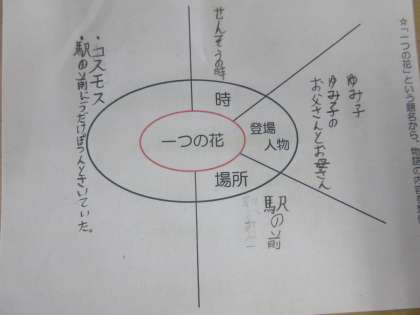 ☆「一つの花」という題名から、物語の内容を
ゆみ子
ゆみ子の
お父さんとお母さん
せんそうの時
時
登場
人物
一つの花
場所
駅の前
・コスモス
・駅の前に
さいていた。